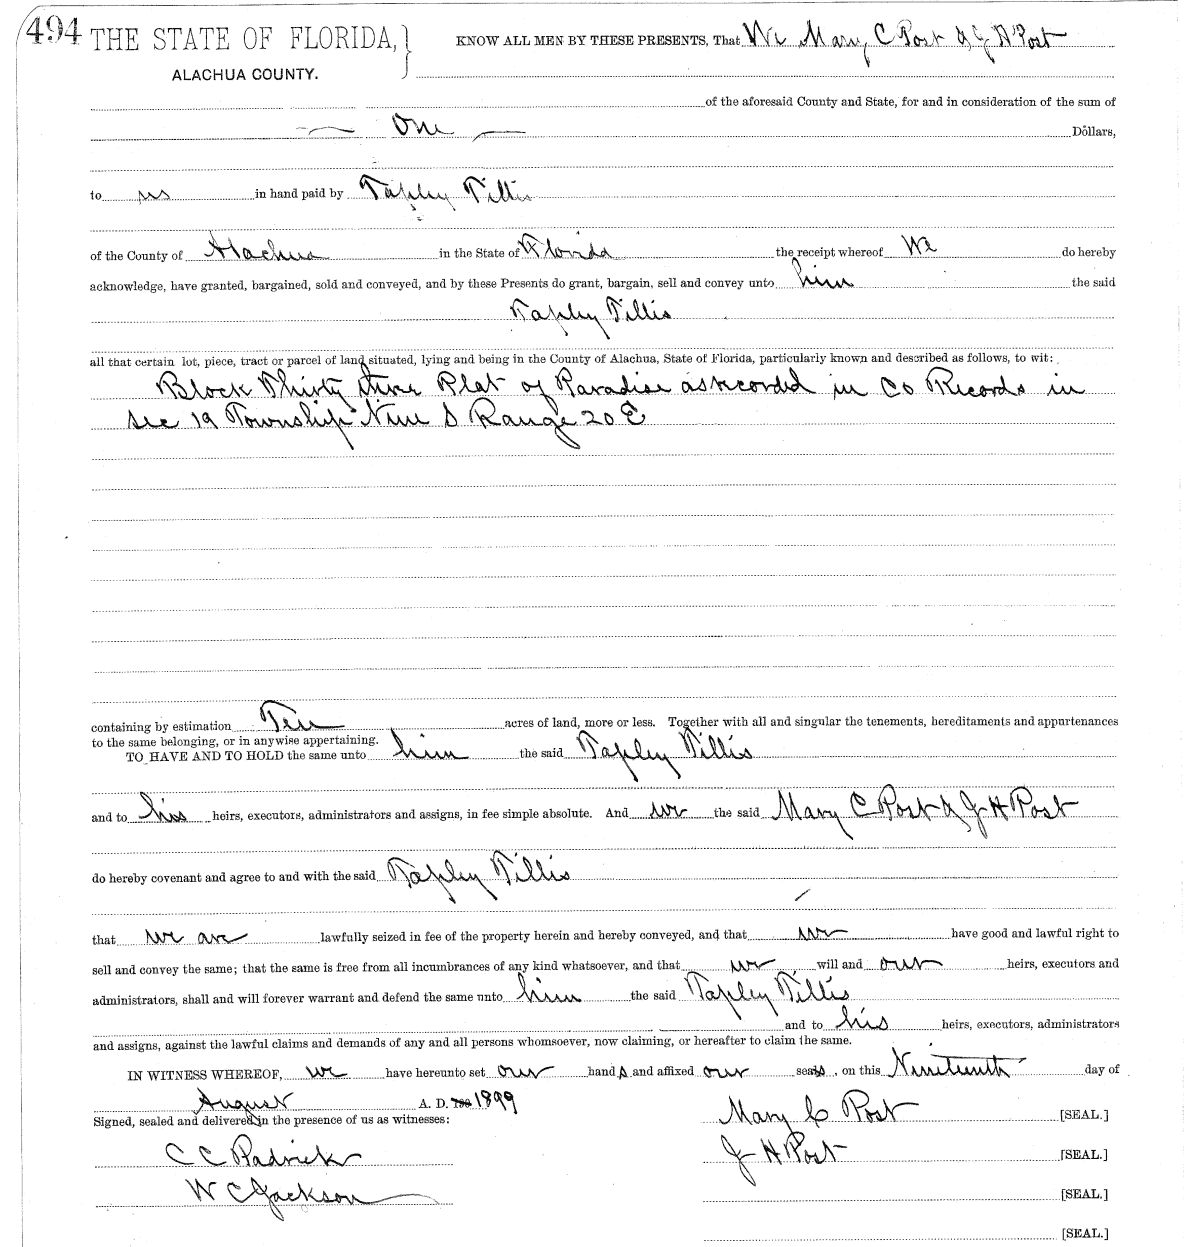 494 THE STATE OF FLORIDA,
ALACHUA COUNTY.
KNOW ALL MEN BY THESE PRESENTS, That We Mary C Post & J H Post
of the aforesaid County and State, for and in consideration of the sum of
One Dollars,
to us in hand paid by Tapley Tillis
of the County of Alachua in the State of Florida the receipt whereof We do hereby
acknowledge, have granted, bargained, sold and conveyed, and by these Presents do grant, bargain, sell and convey unto him the said
Tapley Tillis
all that certain lot, piece, tract or parcel of land situated, lying and being in the County of Alachua, State of Florida, particularly known and described as follows, to wit:
Block Thirty three Plat of Paradise as recorded in Co Records in
Sec 19 Township Nine S Range 20 E
containing by estimation Ten acres of land, more or less. Together with all and singular the tenements, hereditaments and appurtenances
to the same belonging, or in anywise appertaining.
TO HAVE AND TO HOLD the same unto him the said Tapley Tillis
and to his heirs, executors, administrators and assigns, in fee simple absolute. And we the said Mary C Post & J H Post
do hereby covenant and agree to and with the said Tapley Tillis
that we are lawfully seized in fee of the property herein and hereby conveyed, and that we have good and lawful right to
sell and convey the same; that the same is free from all incumbrances of any kind whatsoever, and that we will and our heirs, executors and
administrators, shall and will forever warrant and defend the same unto him the said Tapley Tillis
and to his heirs, executors, administrators
and assigns, against the lawful claims and demands of any and all persons whomsoever, now claiming, or hereafter to claim the same.
IN WITNESS WHEREOF, we have hereunto set our hands and affixed our seals, on this Nineteenth day of
August A. D. 1899
Signed, sealed and delivered in the presence of us as witnesses:
Mary C Post [SEAL.]
C C Padrick
J H Post [SEAL.]
W C Jackson
[SEAL.]
[SEAL.]